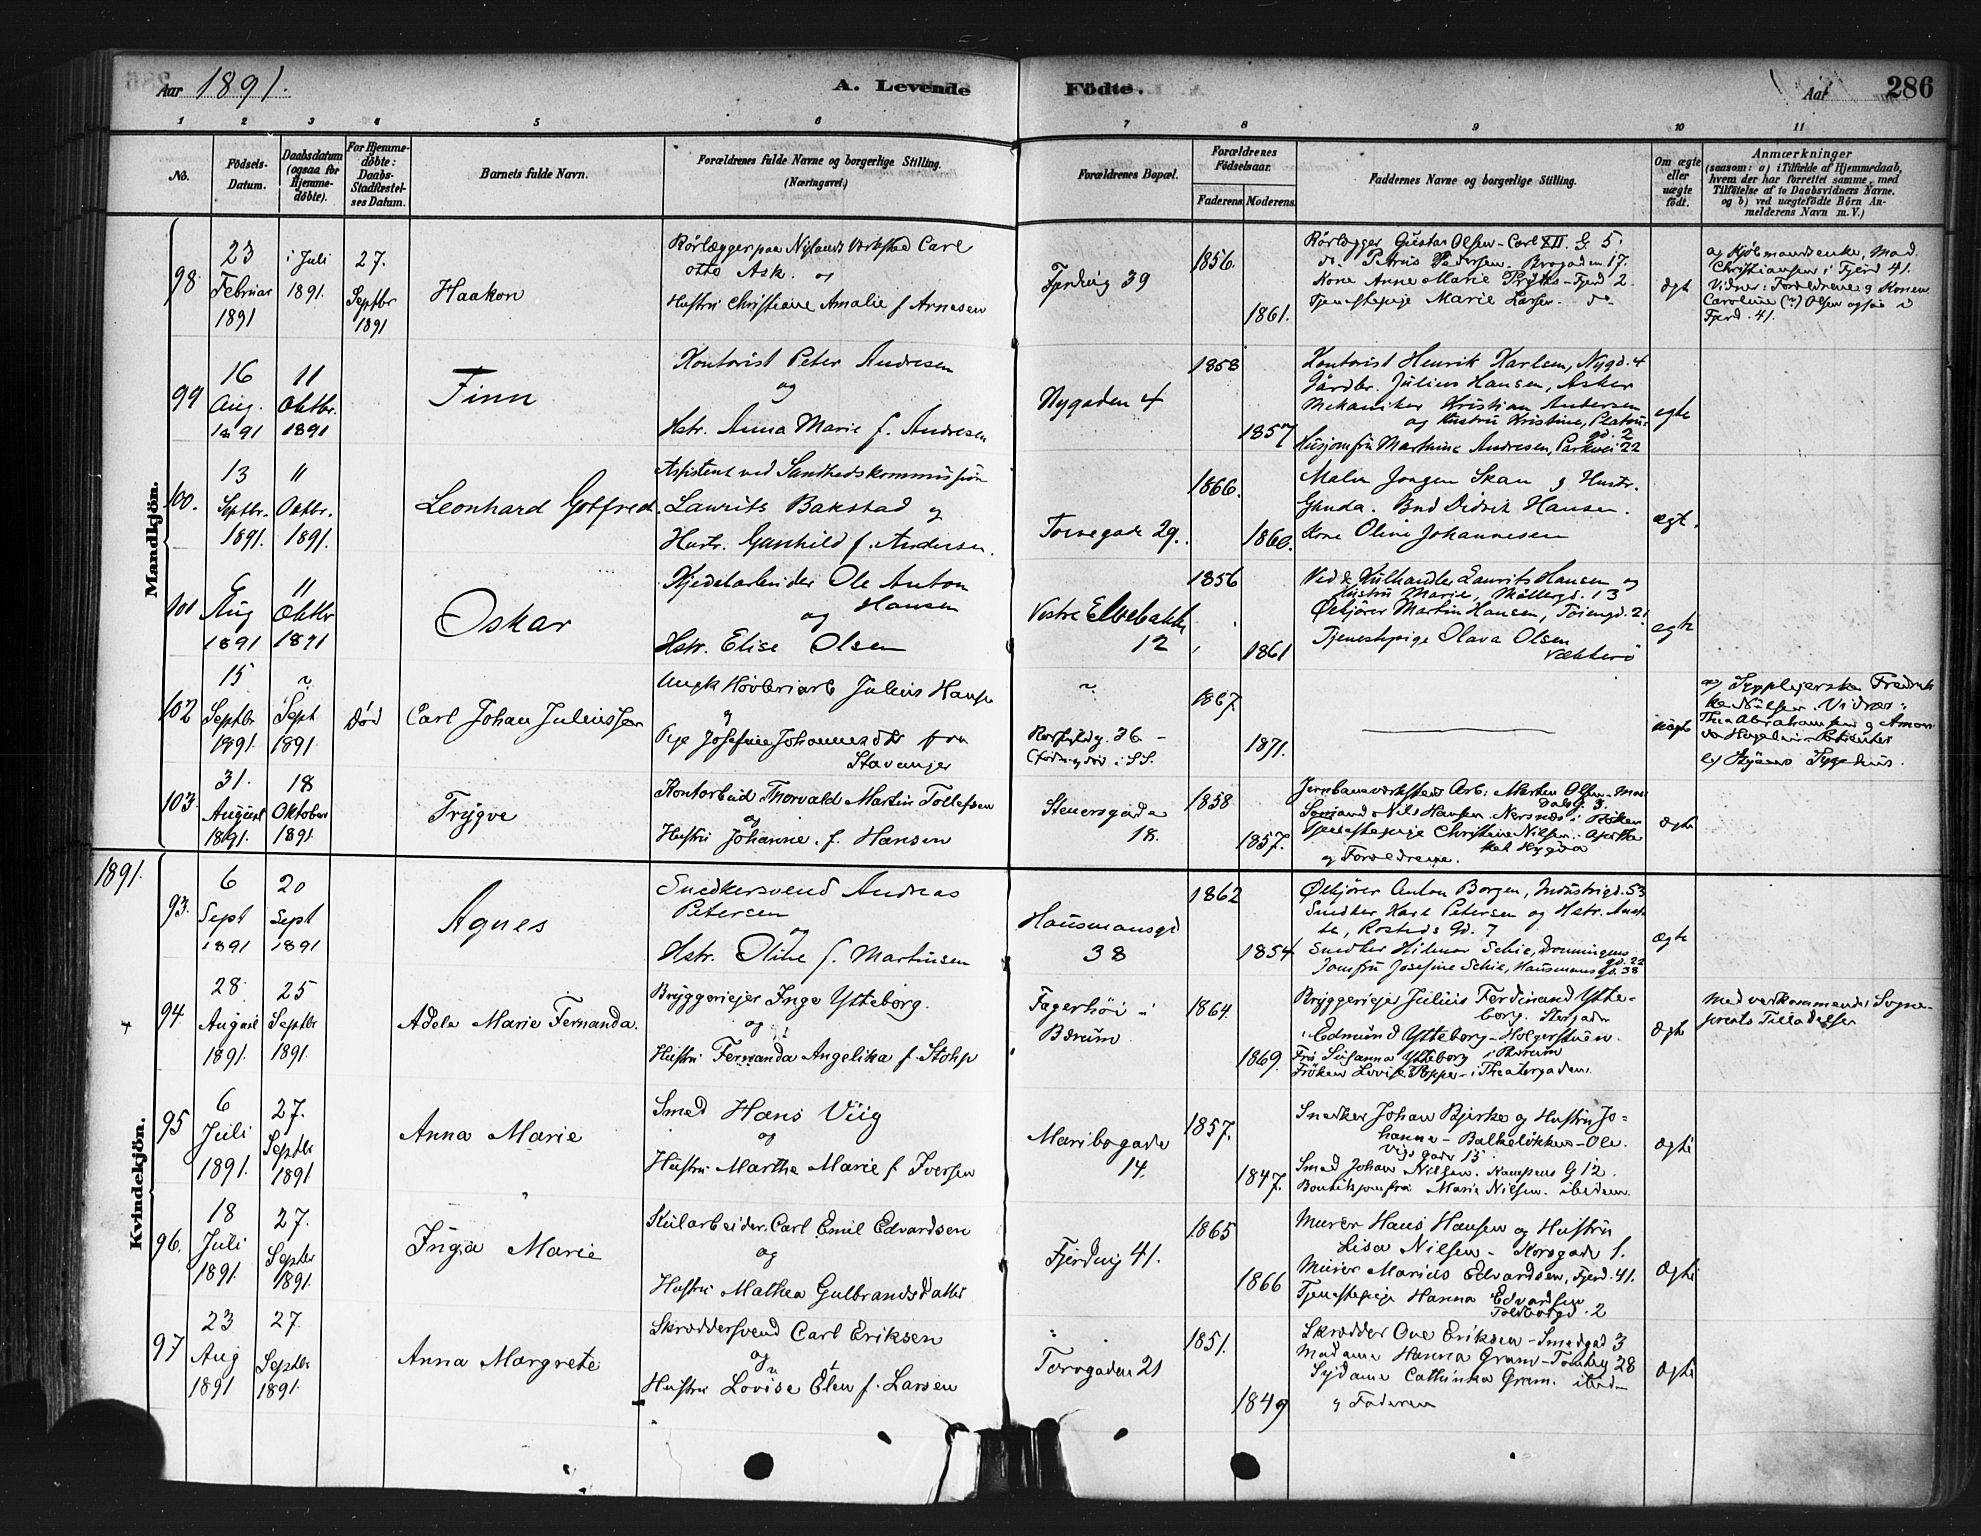 Aar 1891.
A. Levende Fødte.
Aar
286
1 2 3 4 5 6 7 8 9 10 11
No.
Fødsels-
Datum.
Daabsdatum
(ogsaa for
Hjemme-
døbte).
For Hjemme-
døbte:
Daabs-
Stadfæstel-
ses Datum.
Barnets fulde Navn.
Forældrenes fulde Navne og borgerlige Stilling.
(Næringsvei.)
Forældrenes Bopæl.
Forældrenes
Fødselsaar.
Faderens. Moderens.
Faddernes Navne og borgerlige Stilling.
Om ægte
eller
uægte
født.
Anmærkninger
(saasom: a) i Tilfælde af Hjemmedaab,
hvem der har forrettet samme, med
Tilføielse af to Daabsvidners Navne.
og b) ved uægtefødte Børn An-
melderens Navn m. V.)
Mandkjøn.
98.
23
Februar
1891
i Juli
1891.
27.
Septbr
1891
Haakon
Rørlægger paa Nylands Verksted Carl
Otto Ask. og
Hustru Christiane Amalie f. Arnesen
Fjerding 39
1856.
1861.
Rørlægger Gustav Olsen - Carl XII. G. 5.
do. Petrus Pedersen. Brogaden 17.
Kone Anne Marie - Fjerd 2.
Tjenestepige Marie Larsen. do
ægt
a) Kjøbmandsenke, Mad.
Christiansen i Fjerd 41.
Vidner: Forældrene og Konen
Caroline (?) Olsen ogsaa i
Fjerd. 41.
99
16
Aug.
1891
11
Oktbr.
1891
Finn
Kontorist Peter Andresen
og
Hstr. Anna Marie f. Andresen
Nygaden 4
1858
1857
Kontorist Henrik Karlsen, Nygd. 4
Gårdbr. Julius Hansen, Asker
Mekaniker Kristian Andersen
og Hustru Kristine, Platous
gd. 2
Husjomfru Martine Andresen, Parkvei 22
egte
100.
13
Septbr.
1891.
11
Oktbr.
1891.
Leonhard Gotfred.
Assistent ved Sundhedskommission
Laurits Bakstad og
Hustr. Gunhild f. Andersen.
Torvegade 29.
1866.
1866.
Maler Jørgen Skau og Hustr.
Gunda. Bud Didrik Hansen.
Kone Oline Johannesen
ægt.
101
6
Aug
1891
11
Oktbr
1891
Oskar
Kjedelarbeider Ole Anton
Hansen
og
Hstr. Elise Olsen
Vestre Elvebakke
12
1856
1861
Ved & Kulhandler Laurits Hansen og
Hustru Marie, Møllergd. 13
Ølkjører Martin Hansen, Tøiengd. 21
Tjenestepige Olava Olsen
Vækkerø
egte
102
15
Septbr
1891.
Sept
1891.
Død
Carl Johan Juliussen
Ungk Høvleriarb Julius Hansen
og
Pige Josefine Johannesdtr fra
Stavanger
36 -
1867.
1871.
uægte
103.
31.
August
1891.
18
Oktober
1891
Trygve
Kontorbud Thorvald Martin Tollefsen
og
Hustru Johanne f. Hansen
Steenersgade
18.
1858
1857.
Jernbaneværksteds Arb. Morten Olsen.
Sømand Nils Hansen, Nersnes i Røken
Tjenestepige Christine Nilsen.
og Forældrene.
ægte
1891.
Kvindekjøn.
93.
6
Sept
1891
20
Sept
1891
Agnes
Snedkersvend Andreas
Petersen
og
Hstr. Oline f. Martinsen
Hausmansgd
38
1862
1854
Ølkjører Anton Borgen, Industrigd. 53
Snedker Karl Petersen og Hstr. Anet-
te, Rosteds Gd. 7
Snedker Hilmar Schie, Dronningens
gd. 22
Jomfru Josefine Schie, Hausmans gd. 38
Ægte
94.
28.
August
1891.
25
Septbr
1891.
Adele Marie Fernanda.
Bryggerieier Inge Ytteborg.
og
Hustru Fernanda Angelika f. Stoltz
Fagerhøi i
Bærum
1864.
1869.
Bryggerieier Julius Ferdinand Ytte-
borg. Storgaden
Edmund Ytteborg - Holgerstuen.
Fru Susanna Ytteborg i Bærum
Frøken Lovise Hoppe - i Theatergaden.
Ægte
Med vedkommende Sogne-
prests Tilladelse
95
6
Juli
1891.
27.
Septbr
1891
Anna Marie
Smed Hans Viig
og
Hustru Marthe Marie f. Iversen
Maribogade
14.
1857.
1847.
Snedker Johan Bjerke og Hustru Jo-
hanne - Balkeløkken - Ole
Vigs gade 15.
Smed Johan Nilsen. Kampens G 12.
Boutikjomfru Marie Nilsen. ibidem.
Ægte
96.
18
Juli
1891.
27.
Septbr
1891.
Inga Marie
Kularbeider. Carl Emil Edvardsen
og
Hustru Mathea Gulbrandsdatter
Fjerding 41.
1865
1866
Murer Hans Hansen og Hustru
Lisa Nilsen - Korsgade 1.
Murer Marius Edvardsen, Fjerd. 41.
Tjenestepige Hanna Edvardsen
Toldbodgd. 2
Ægte
97
23
Aug
1891
27.
Septbr
1891.
Anna Margrete
Skræddersvend Carl Eriksen
og
Hustru Lovise Elen f. Larsen
Torvgaden 21
1851.
1849
Skrædder Ove Eriksen - Smedgad 3
Madame Hanna Gram - Tomteg 28
Sydame Cathinka Gram. ibidem
og Faderen
Ægte